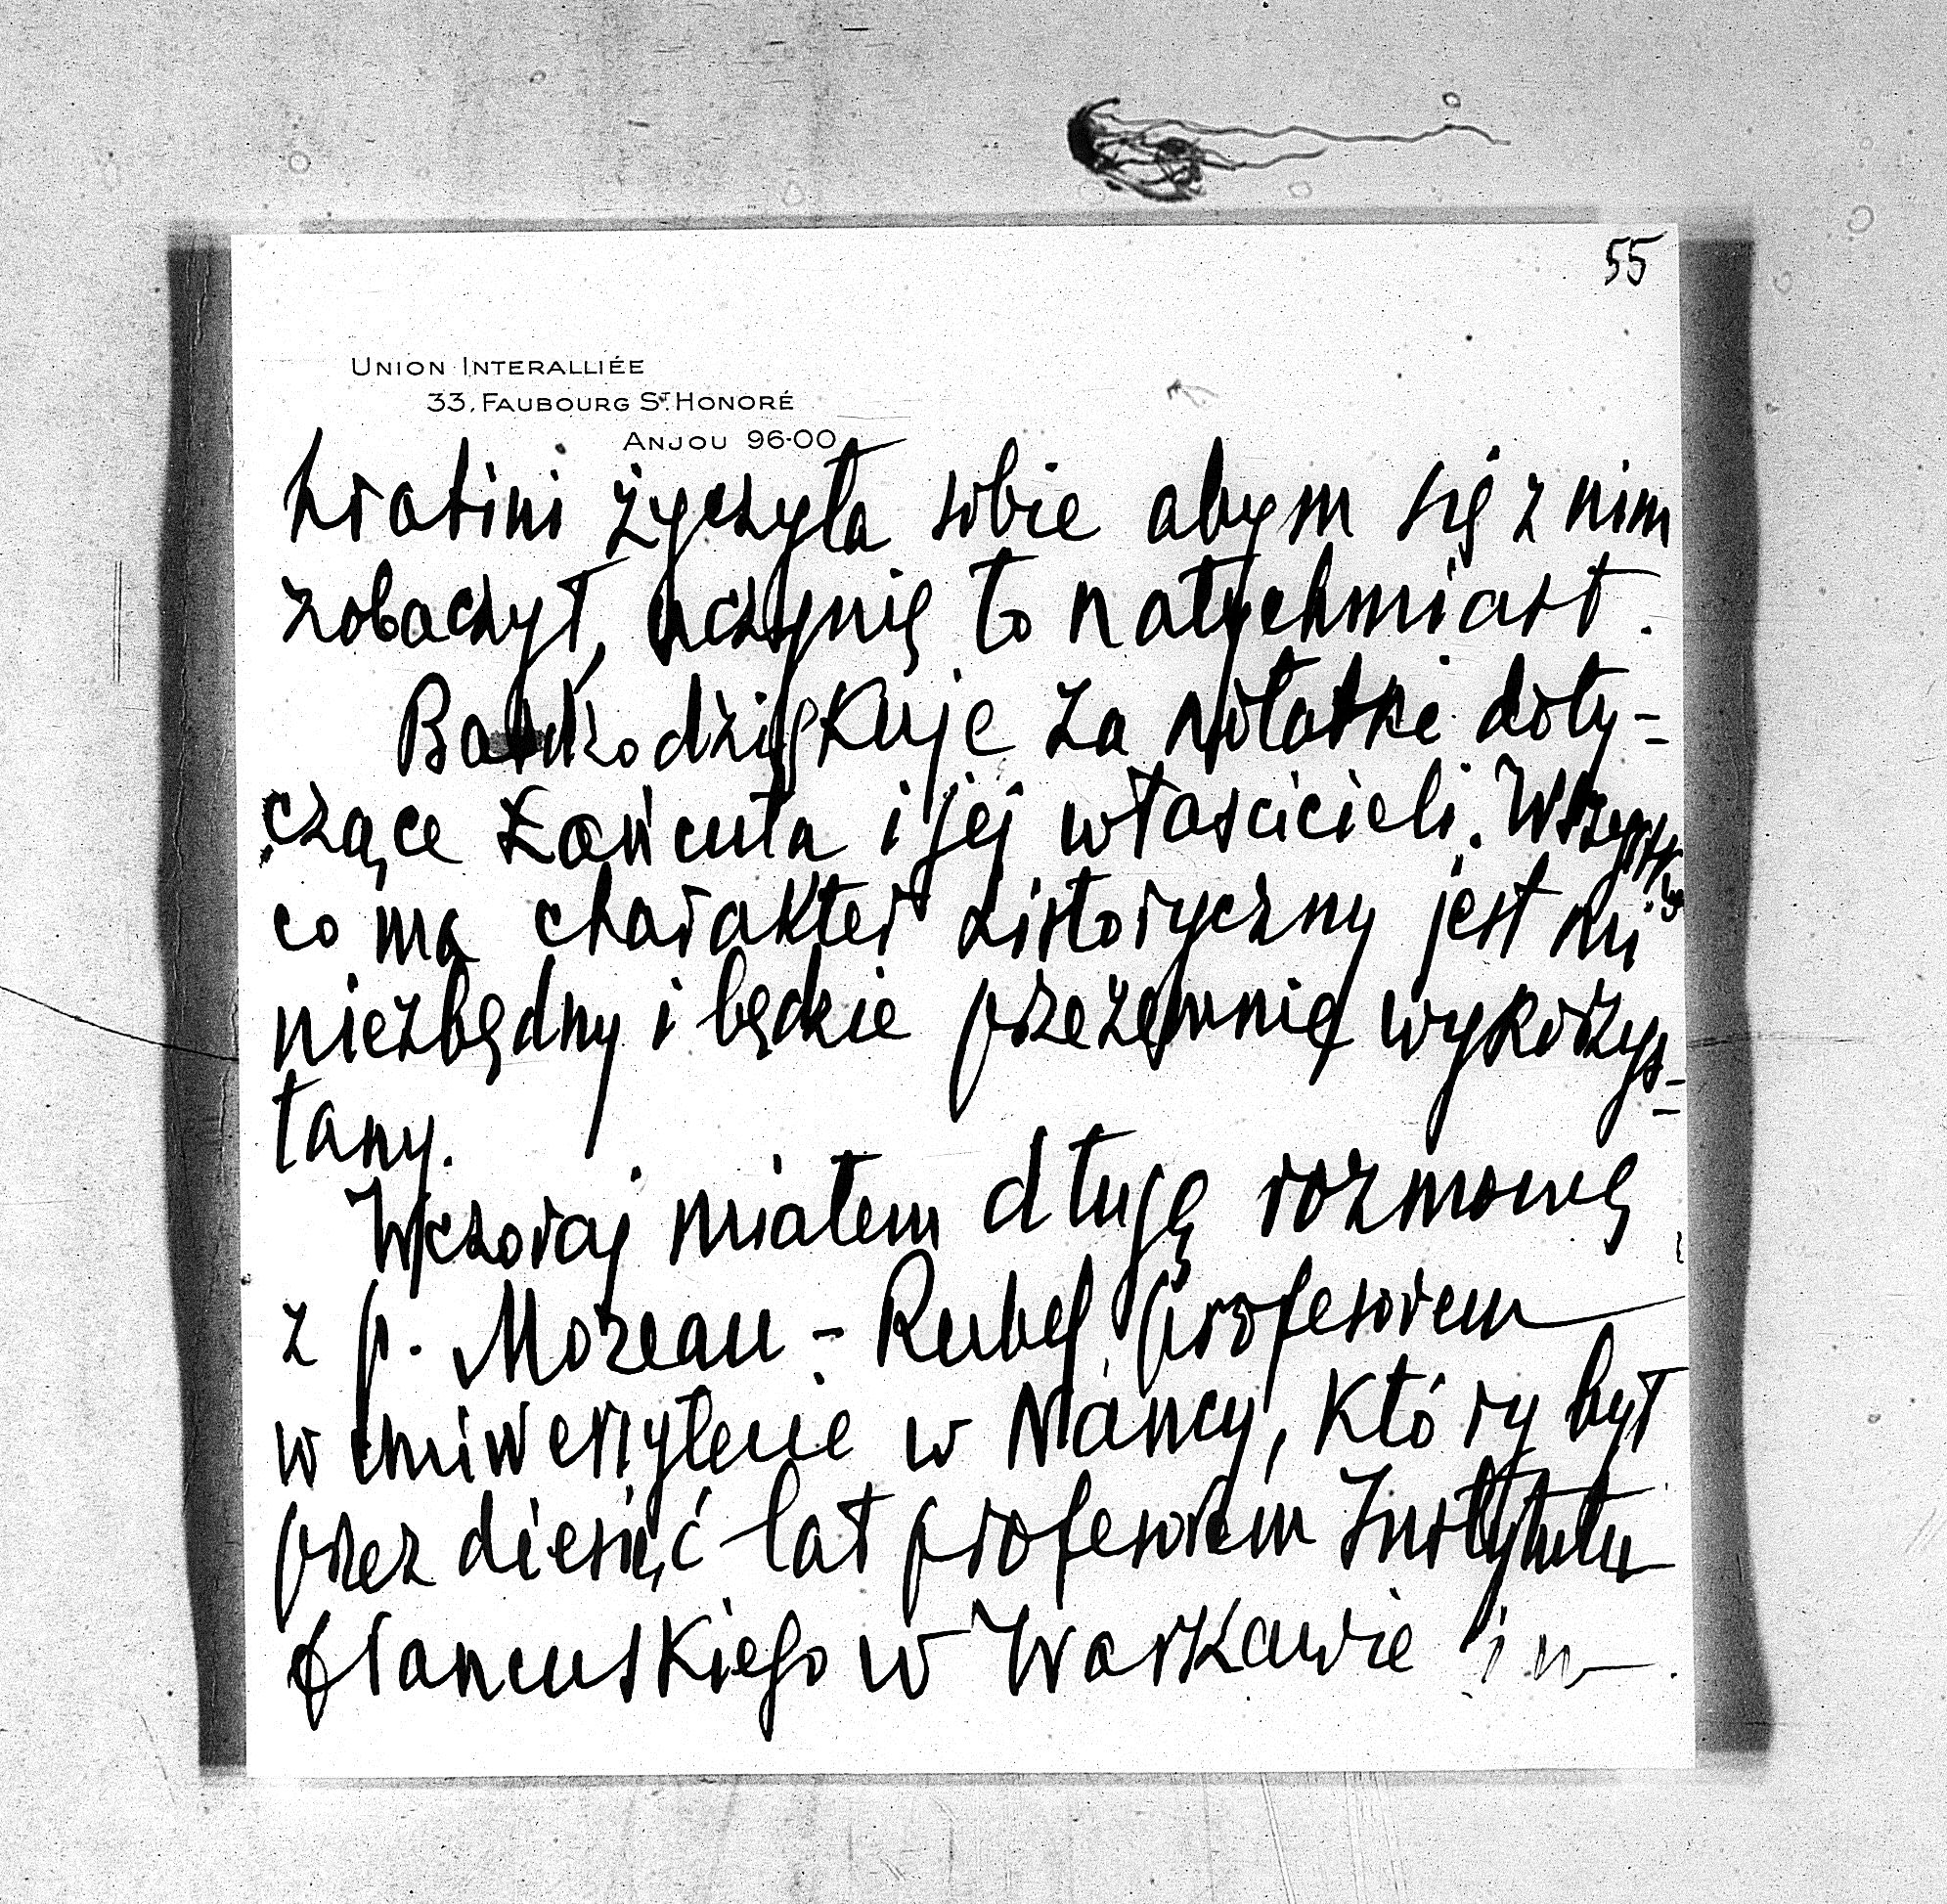 55
UNION INTERALLIÉE
33, FAUBOURG ST. HONORÉ
ANJOU 96-00
hrabini życzyła sobie abym się z nim
zobaczył, uczynię to natychmiast.
Bardzo dziękuję za notatkę doty-
czącę Łańcuta i jej właścicieli. Wszystko
co ma charakter historyczny jest mi
niezbędny i będzie przezemnię wykorzys-
tany.
Wczoraj miałem długą rozmowę
z p. Moreau-Reibel profesorem
w uniwersytecie w Nancy, który był
przez diesięć lat profesorem Instytutu
francuskiego w Warszawie i w